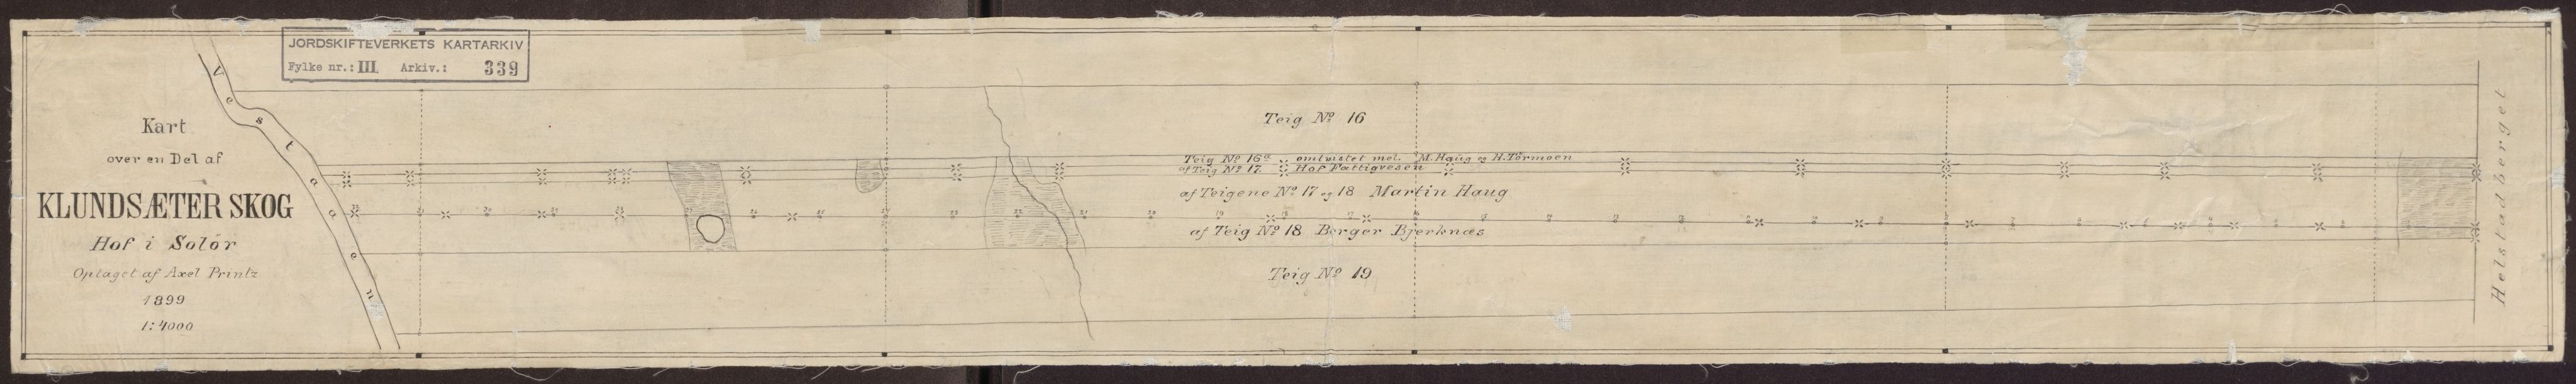 JORDSKIFTEVERKETS KARTARKIV
Fylke nr.: III Arkiv.: 339
Kart
over en Del af
KLUNDSÆTER SKOG
Hof i Solør
Optaget af Axel Printz
1899
1:4000
Vestaaen
Teig No 16
Teig No 16a M. Haug og H. Tørmoen
af Teig No 17 Hof Fattigvesen
af Teigene No 17 og 18 Martin Haug
af Teig No 18 Berger Bjerknæs
Teig No 19
Helstadberget